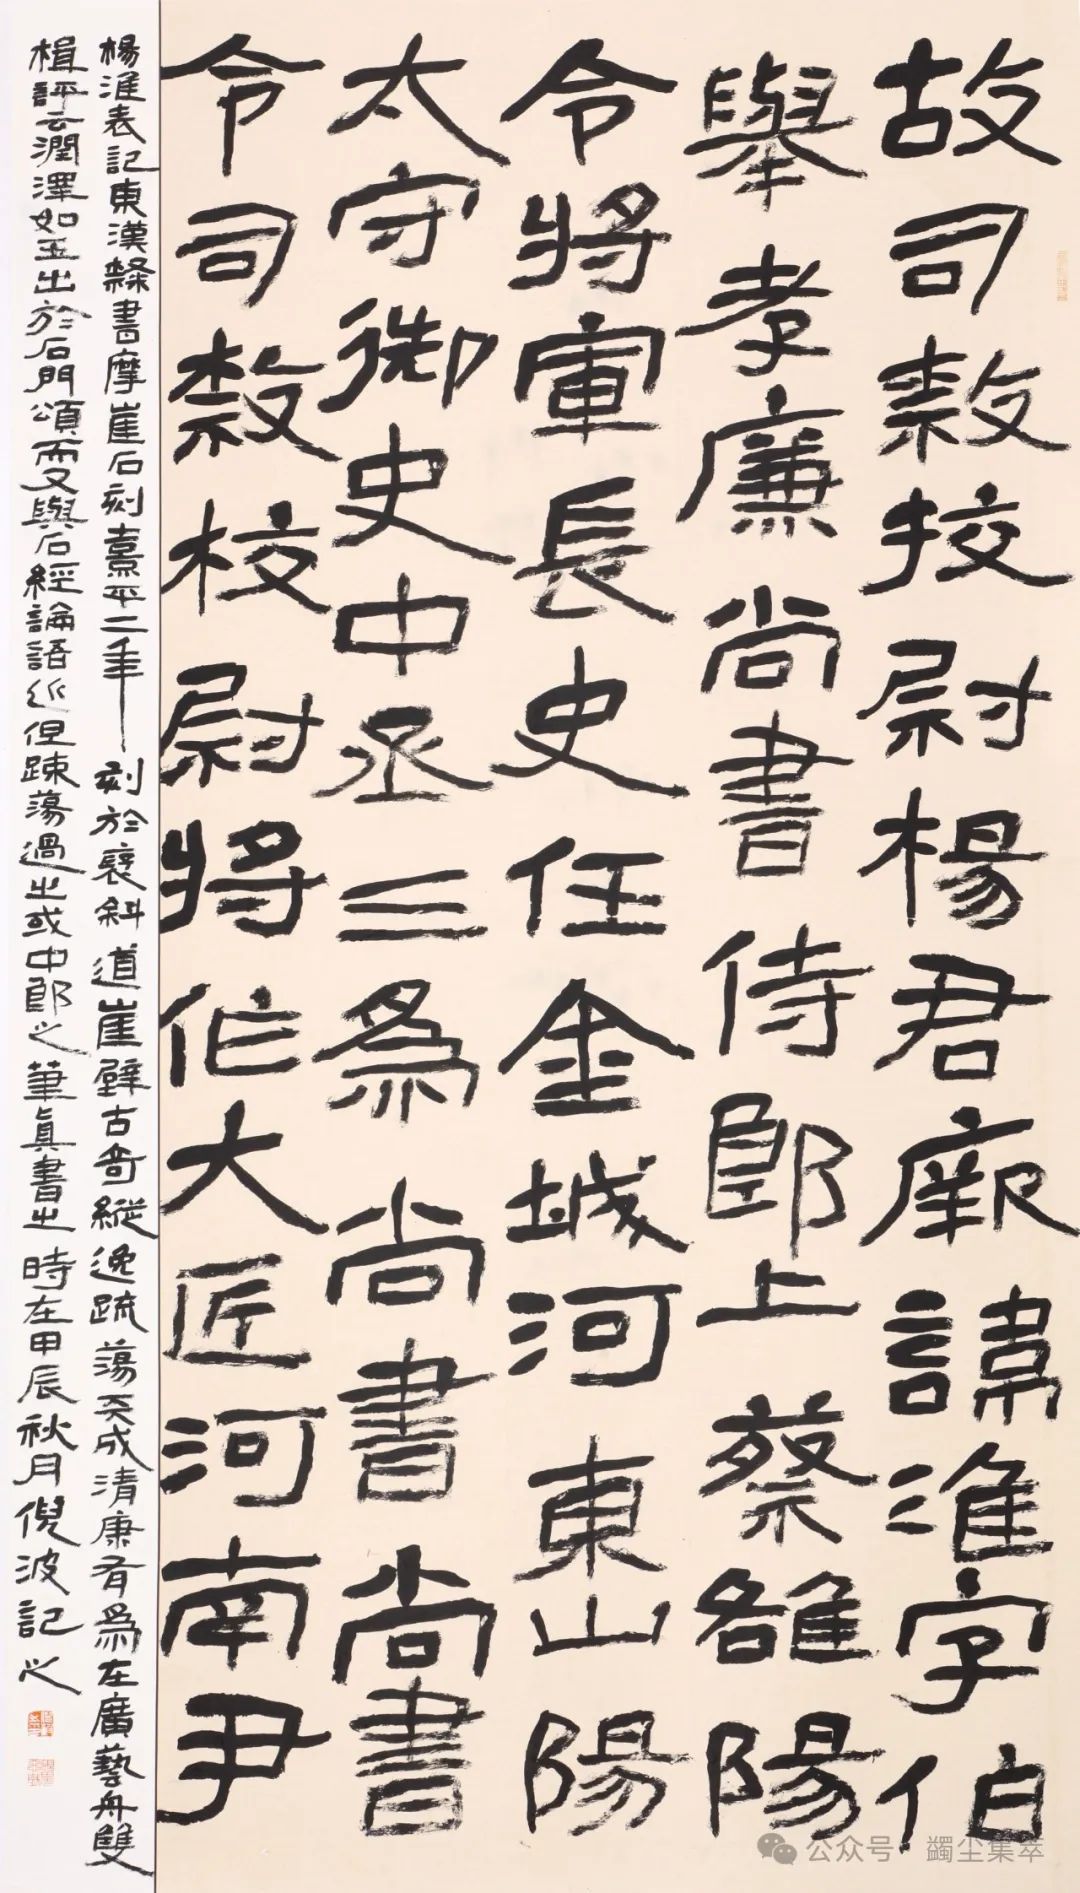 故司隸挍尉楊君厥諱淮字伯
舉孝廉尚書侍郎上蔡雒陽
令將軍長史任金城河東山陽
太守御史中丞三為尚書尚書
令司隸校尉將作大匠河南尹
楊淮表記東漢隸書摩崖石刻熹平二年刻於褒斜道崖壁古奇縱逸疏蕩天成清康有為在廣藝舟雙
楫評云潤澤如玉出於石門頌而又與石經論語近但疎蕩過之或中郎之筆真書之時在甲辰秋月倪波記之
公众号·蠲尘集萃